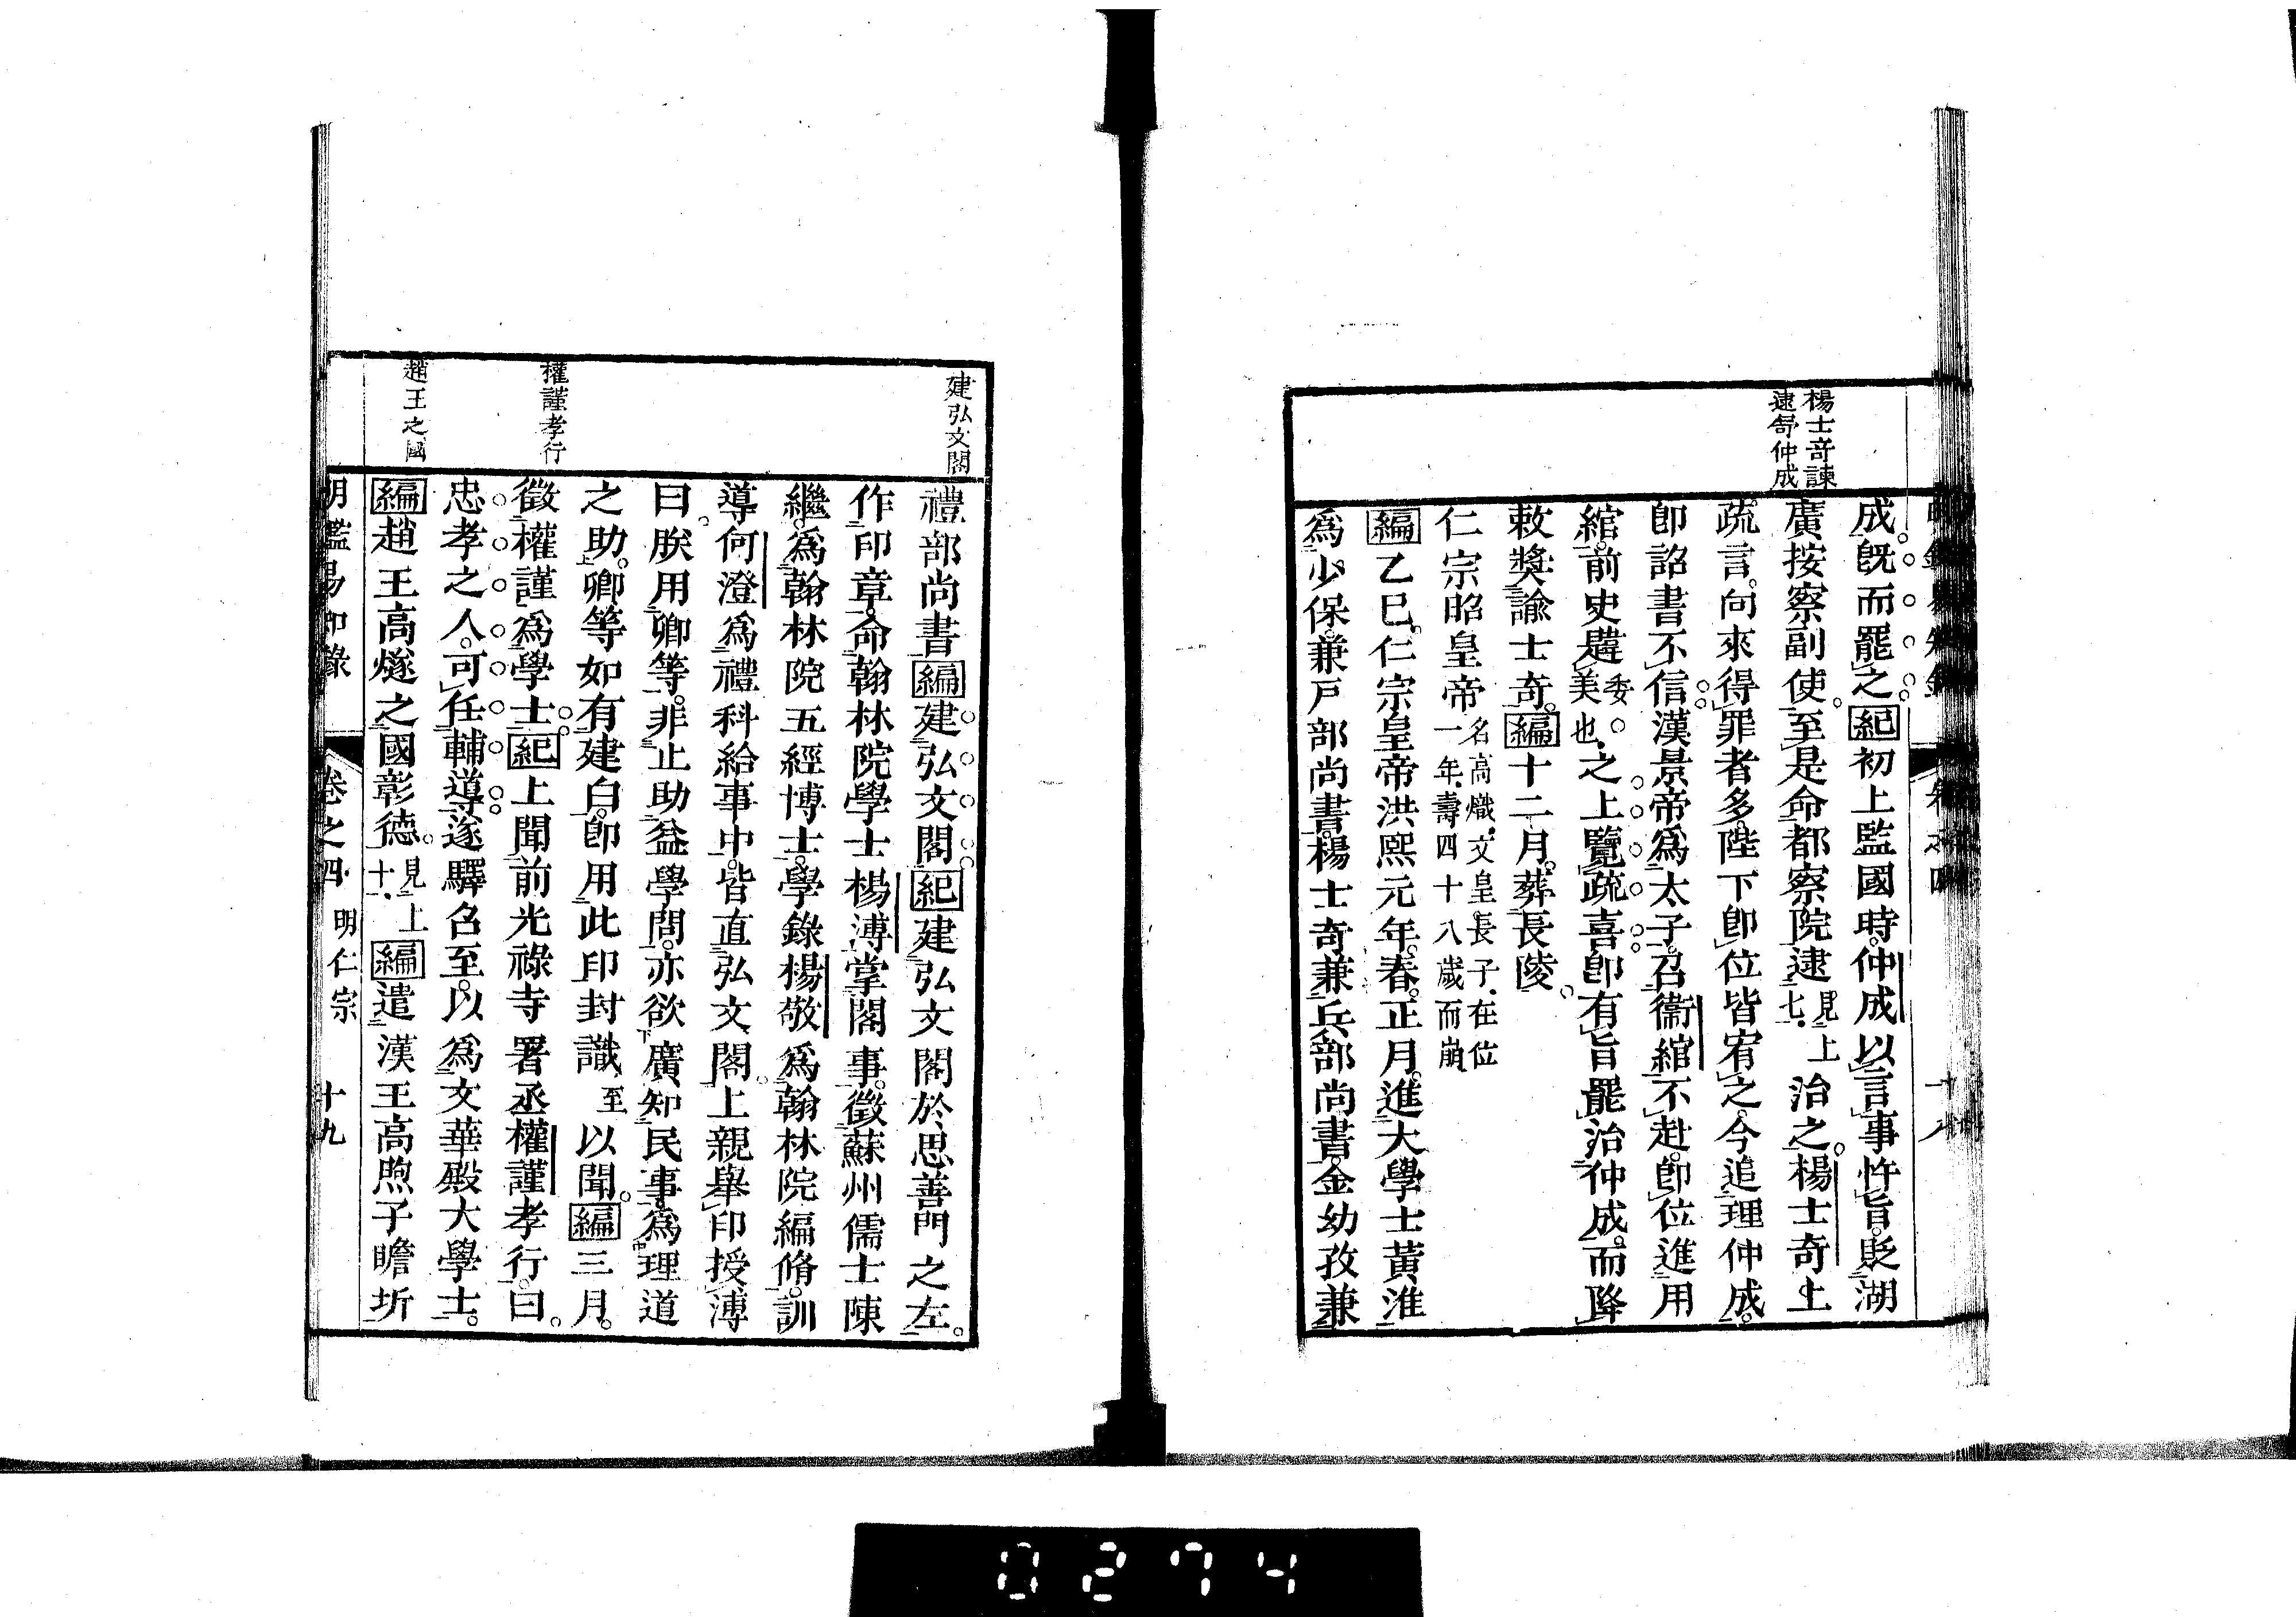 楊士奇諫
逮舒仲成
成既而罷之紀初上監國時仲成以言事忤旨貶湖
廣按察副使至是命都察院逮見上七治之楊士奇上
疏言向來得罪者多陛下即位皆宥之今追理仲成
即詔書不信漢景帝爲太子召衞綰不赴即位進用
綰前史韙委美也之上覽疏喜即有旨罷治仲成而降
敕奬諭士奇編十二月葬長陵
仁宗昭皇帝名高熾文皇長子在位一年壽四十八歲而崩
編乙巳仁宗皇帝洪熙元年春正月進大學士黃淮
爲少保兼戸部尚書楊士奇兼兵部尚書金幼孜兼
建弘文閣
權謹孝行
趙王之國
禮部尚書編建弘文閣紀建弘文閣於思善門之左
作印章命翰林院學士楊溥掌閣事徵蘇州儒士陳
繼爲翰林院五經博士學錄楊敬爲翰林院編脩訓
導何澄爲禮科給事中皆直弘文閣上親舉印授溥
曰朕用卿等非止助益學問亦欲廣知民事爲理道
之助卿等如有建白即用此印封識至以聞編三月
徵權謹爲學士紀上聞前光祿寺署丞權謹孝行曰
忠孝之人可任輔導遂驛召至以爲文華殿大學士
編趙王高燧之國彰德見上十編遣漢王高煦子瞻圻
明鑑易知錄 卷之四 明仁宗 十九
0274